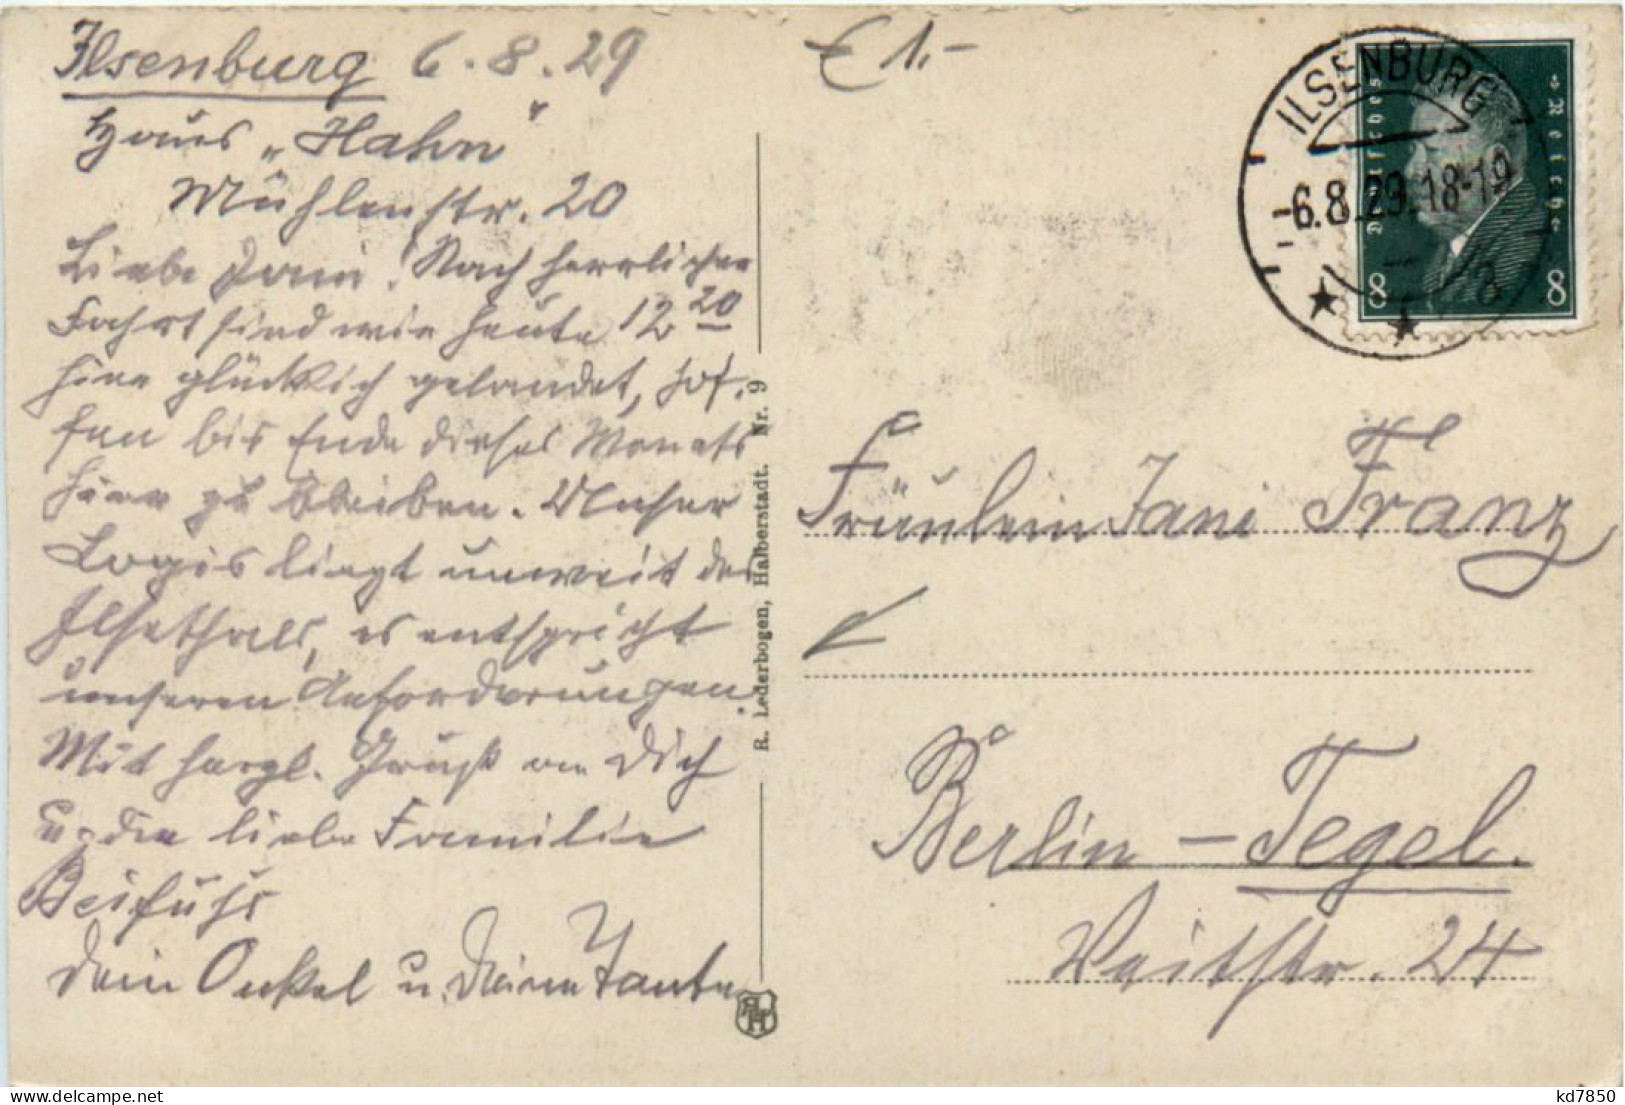 Ilsenburg 6.8.29
Haus „Hahn"
Mühlenstr. 20
Liebe Jani! Nach herrlicher
Fahrt sind wir heute 12 20
hier glücklich gelandet, hof-
fen bis Ende dieses Monats
hier zu bleiben. Unser
Logis liegt unweit des
Ilsethals, es entspricht
unseren Anforderungen.
Mit herzl. Gruß an Dich
u. die liebe Familie
Beifuhs
Dein Onkel u. Deine Tante
R. Lederbogen, Halberstadt. Nr. 9
RLH
€ 1.-
ILSENBURG
-6.8.29.18-19
a
Deutsches Reich
8 8
Fräulein Jani Franz
Berlin – Tegel.
Veitstr. 24
kd7850